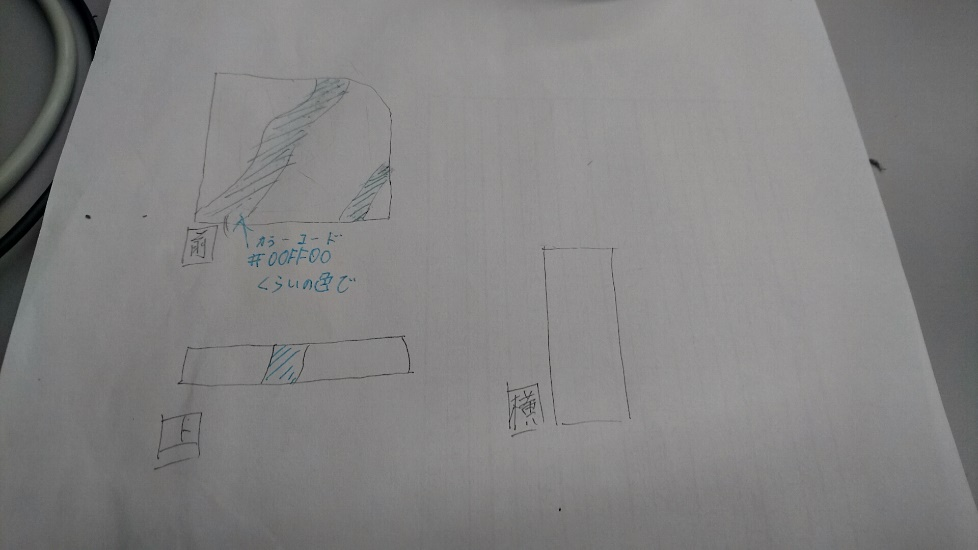 前
カラーコード
#00FF00
くらいの色で
上
横